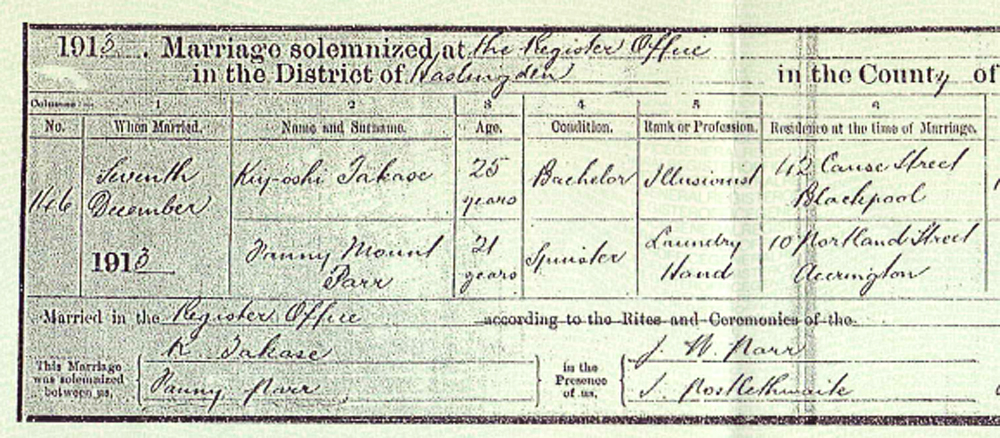 1913. Marriage solemnized at the Register Office
in the District of Haslingden in the County of
Columns:— 1 2 3 4 5 6
No. When Married. Name and Surname. Age. Condition. Rank or Profession. Residence at the time of Marriage.
146 Seventh December 1913 Kiyoshi Takase 25 years Bachelor Illusionist 42 Street Blackpool
Fanny Mount Parr 21 years Spinster Laundry Hand 10 Portland Street Accrington
Married in the Register Office according to the Rites and Ceremonies of the
This Marriage was solemnized between us,
K. Takase
Fanny Parr
in the Presence of us,
J. W. Parr
J. Postlethwaite